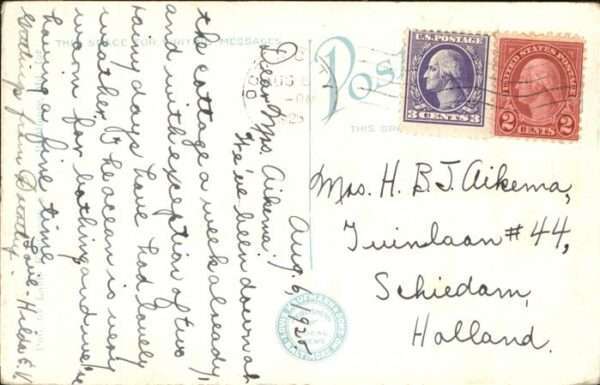 THIS SPACE FOR WRITING MESSAGES
Aug. 6, 1925.
Dear Mrs. Aikema:
We've been down at
the cottage a week already,
and with exception of two
rainy days have had lovely
weather. The ocean is very
warm for bathing and we're
having a fine time.
Love - Hilda E. V.
AUG 6
U.S. POSTAGE
3 CENTS 3
UNITED STATES POSTAGE
2 CENTS 2
Mrs. H. B. J. Aikema,
Tuinlaan # 44,
Schiedam,
Holland.